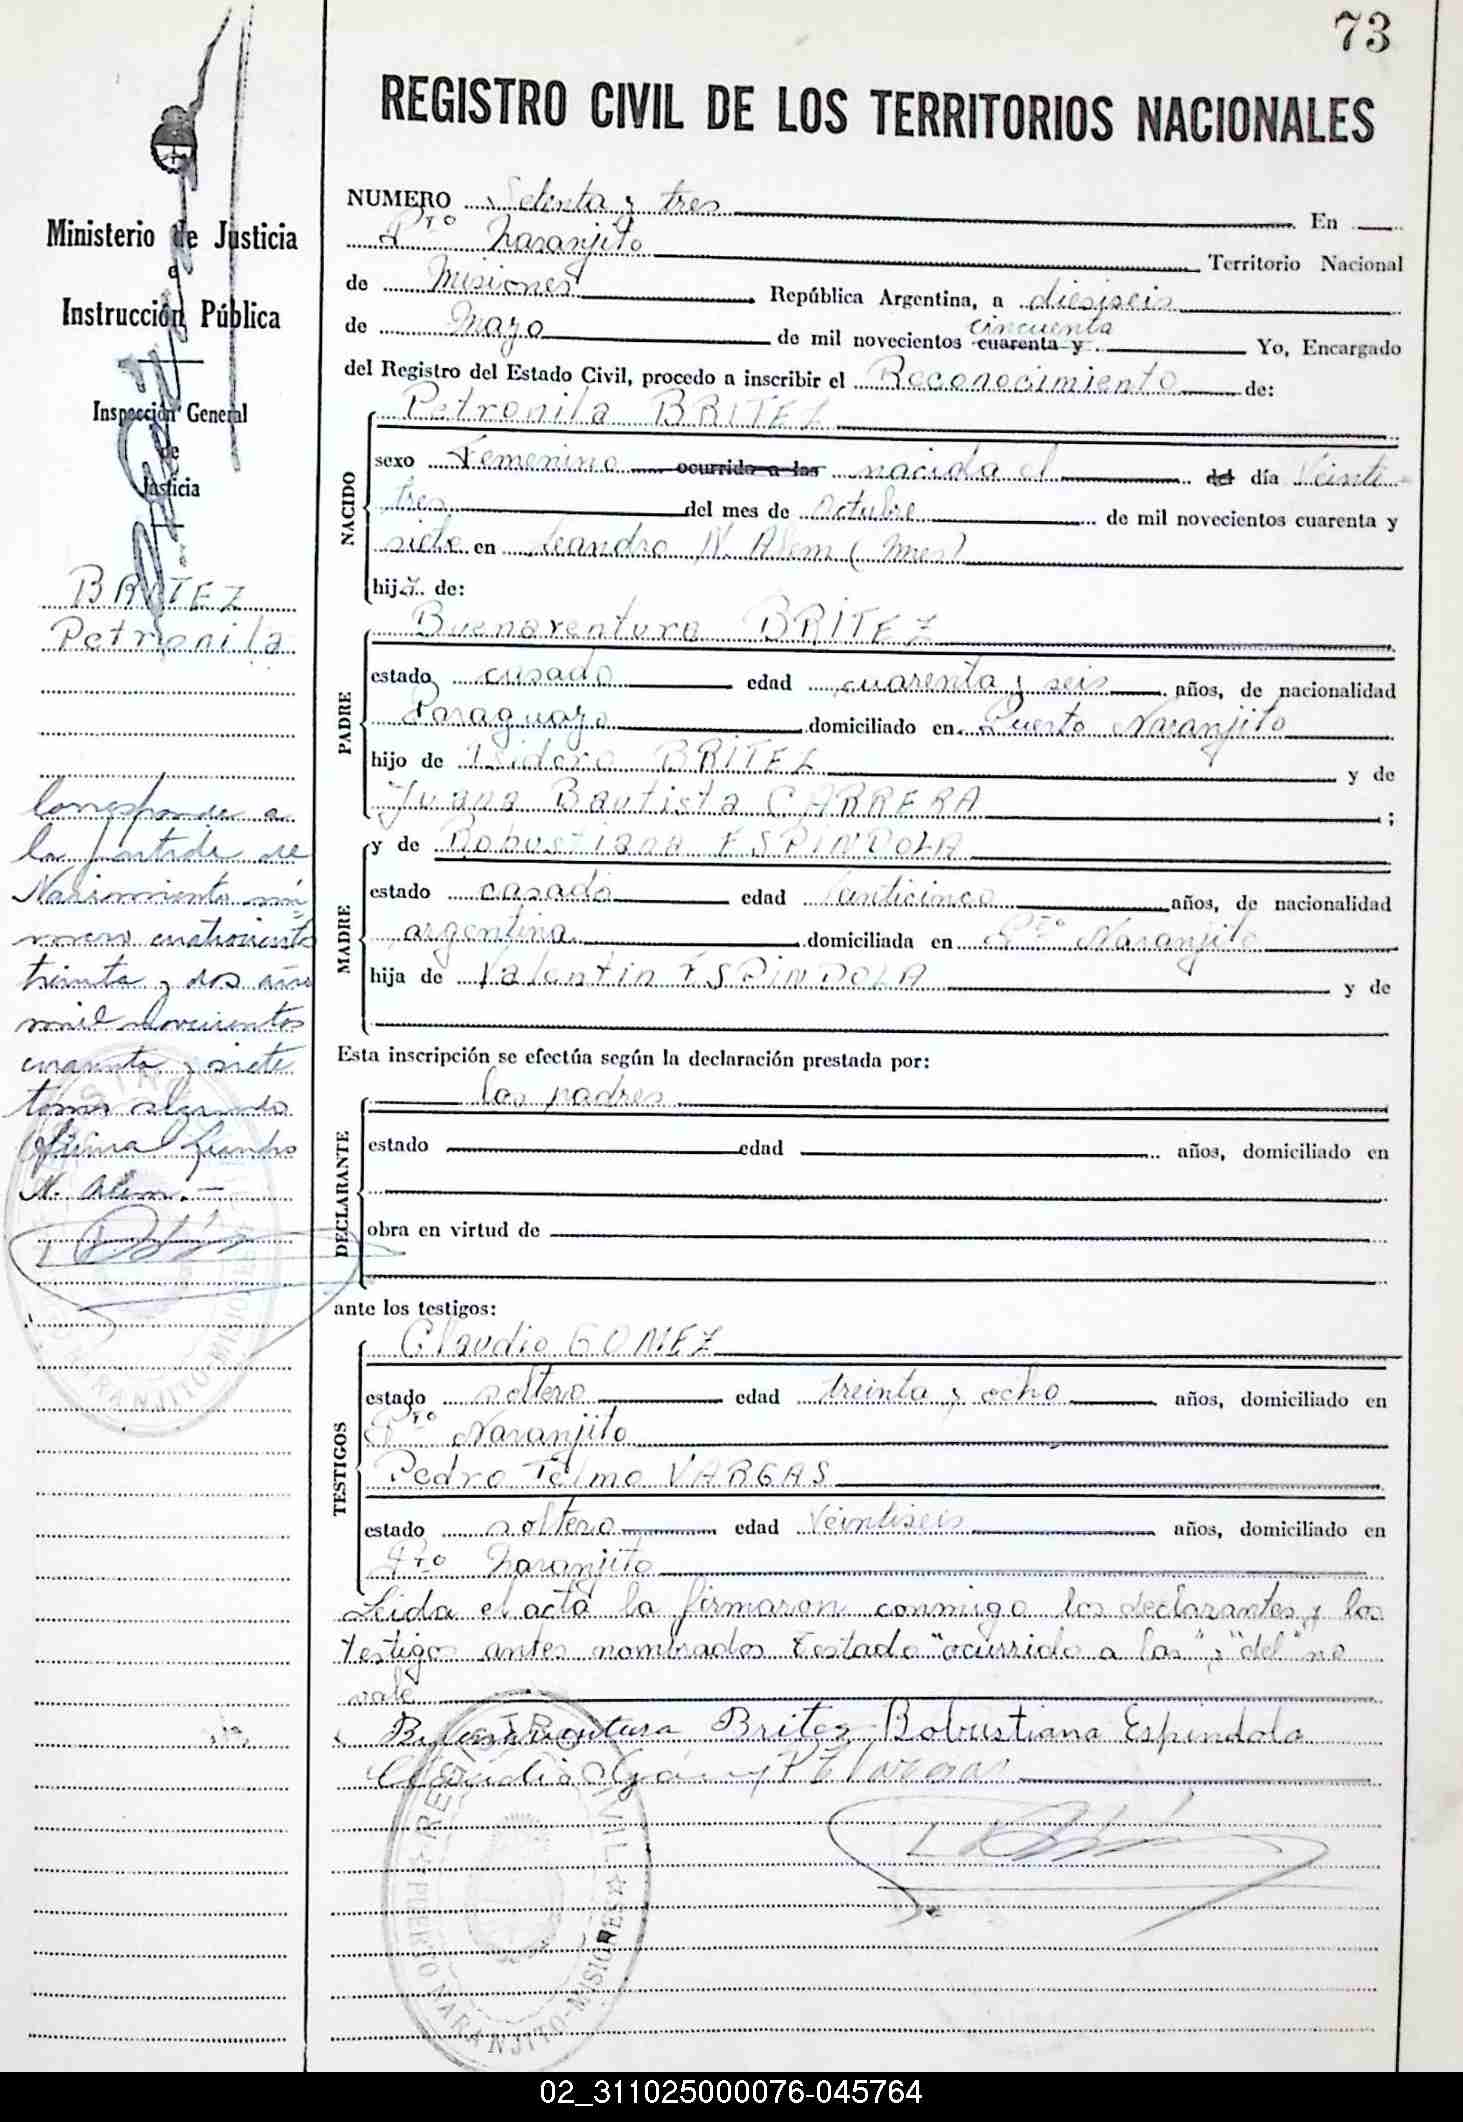 73
REGISTRO CIVIL DE LOS TERRITORIOS NACIONALES
Ministerio de Justicia
e
Instrucción Pública
Inspección General
de
Justicia
BRITEZ
Petronila
Corresponde a
la partida de
Nacimiento nú-
mero cuatrocientos
treinta y dos año
mil novecientos
cuarenta y siete
tomo segundo
Oficina Leandro
N. Alem.-
NUMERO Setenta y tres En
Pto Naranjito Territorio Nacional
de Misiones República Argentina, a diesiseis
de Mayo de mil novecientos cuarenta y cincuenta Yo, Encargado
del Registro del Estado Civil, procedo a inscribir el Reconocimiento de:
NACIDO
Petronila BRITEZ
sexo Femenino ocurrido a las nacida el del día Veinti-
tres del mes de Octubre de mil novecientos cuarenta y
siete en Leandro N. Alem (Mnes)
hija de:
PADRE
Buenaventura BRITEZ
estado casado edad cuarenta y seis años, de nacionalidad
Paraguayo domiciliado en Puerto Naranjito
hijo de Isidoro BRITEZ y de
Juana Bautista CARRERA ;
MADRE
y de Robustiana ESPINDOLA
estado casada edad años, de nacionalidad
argentina domiciliada en Pto Naranjito
hija de Valentin ESPINDOLA y de
Esta inscripción se efectúa según la declaración prestada por:
DECLARANTE
los padres
estado edad años, domiciliado en
obra en virtud de
ante los testigos:
TESTIGOS
Claudio GOMEZ
estado soltero edad treinta y ocho años, domiciliado en
Pto Naranjito
Pedro Telmo VARGAS
estado soltero edad Veintiseis años, domiciliado en
Pto Naranjito
Leida el acta la firmaron conmigo los declarantes y los
testigos antes nombrados Testado "ocurrido a las"; "del" no
vale
Buenaventura Britez Bobustiana Espindola
P T Vargas
REGISTRO CIVIL
PUERTO NARANJITO-MISIONES
02_311025000076-045764